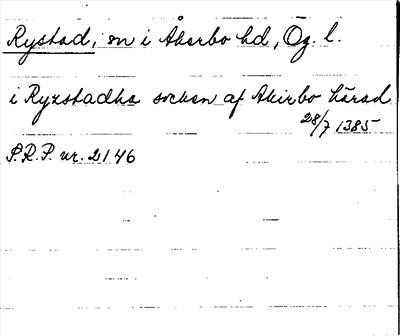 Rystad, sn i Åkerbo hd, Ög. l.
i Ryzstadha socken af Akirbo härad
28/7 1385
S.R.P. nr. 2146